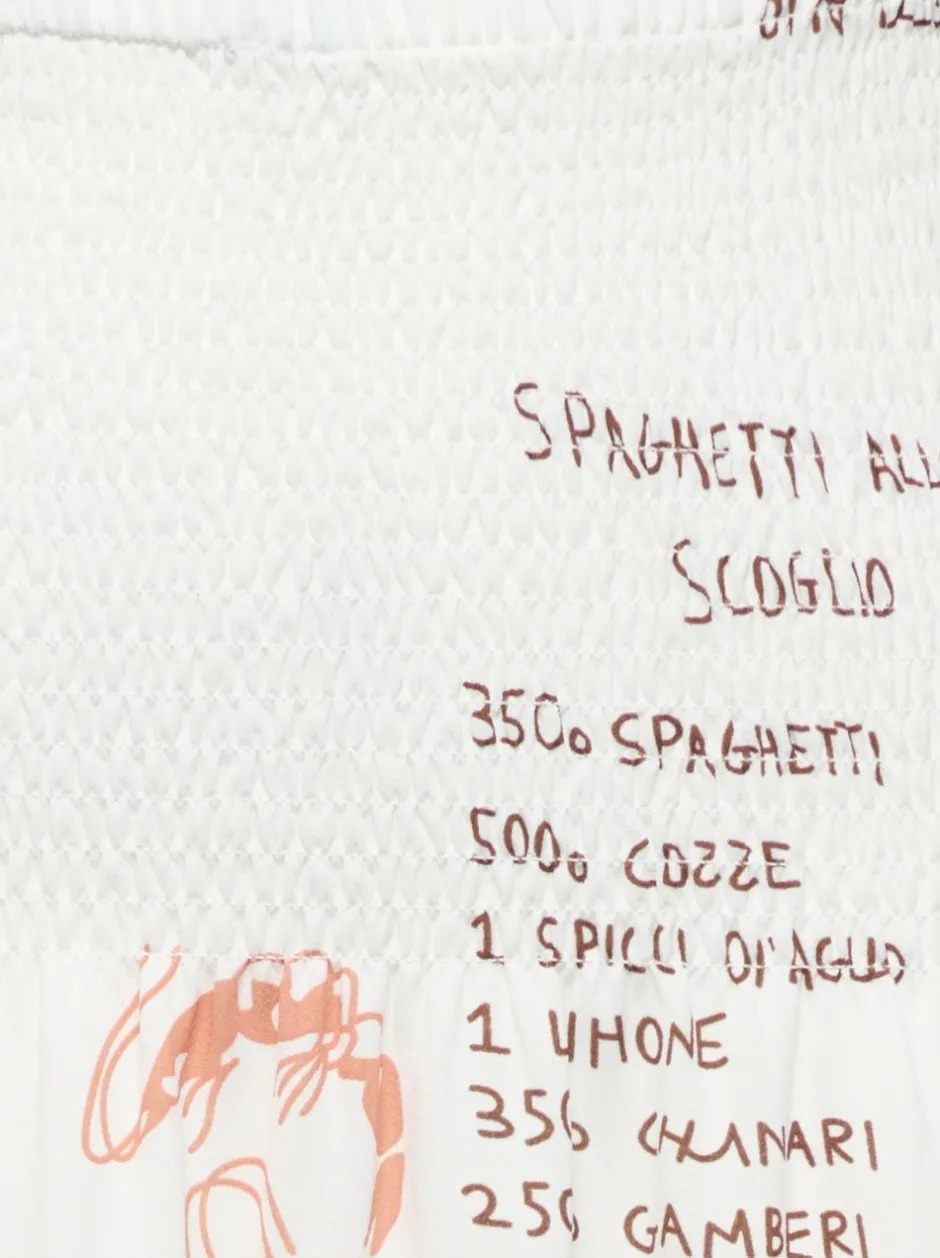 SPAGHETTI ALL
SCOGLIO
350g SPAGHETTI
500g COZZE
1 SPICCI DI AGLIO
1 UMONE
350 
250 GAMBERI